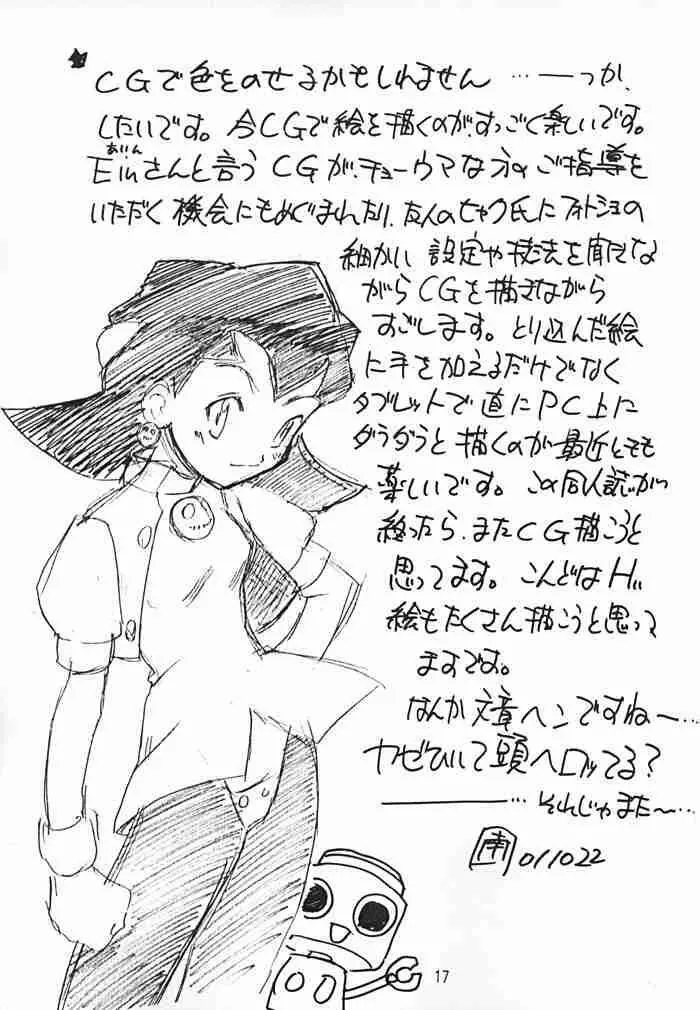 CGで色をのせるかもしれません …ーっか、
したいです。今CGで絵を描くのが、すっごく楽しいです。
あいん
Einさんと言う CGが、チョーウマな方のご指導を
いただく 機会にもめぐまれたり、友人のセャク氏にフォトショの
細かい 設定や技法を聞きな
がらCGを描きながら
すごします。とり込んだ絵
に手を加えるだけでなく
タブレットで直にPC上に
ダラダラと描くのが最近とても
楽しいです。この同人誌が
終ったら、またCG描こうと
思ってます。こんどはH
絵もたくさん描こうと思って
ますです。
なんか文章ヘンですねー…
カゼひいて頭ヘロってる?
…それじゃまた〜…
南 011022
17